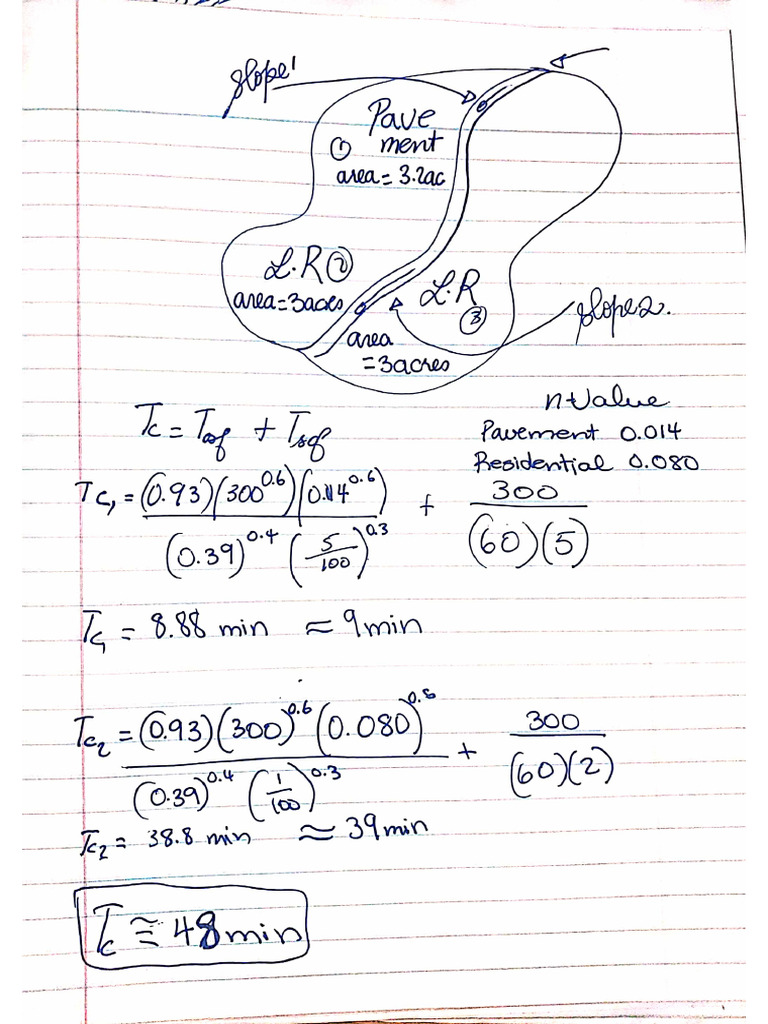 slope 1
Pave
ment
①
area = 3.2ac
L.R ②
area = 3acres
L.R
③
slope 2.
area
= 3 acres
n-Value
Tc = Tosf + Tscf
Pavement 0.014
Residential 0.080
Tc₁ = (0.93)(300^0.6)(0.014^0.6) / (0.39)^0.4 (5/100)^0.3 + 300 / (60)(5)
Tc₁ = 8.88 min ≈ 9 min
Tc₂ = (0.93)(300)^0.6 (0.080)^0.6 / (0.39)^0.4 (1/100)^0.3 + 300 / (60)(2)
Tc₂ = 38.8 min ≈ 39 min
Tc ≅ 48 min